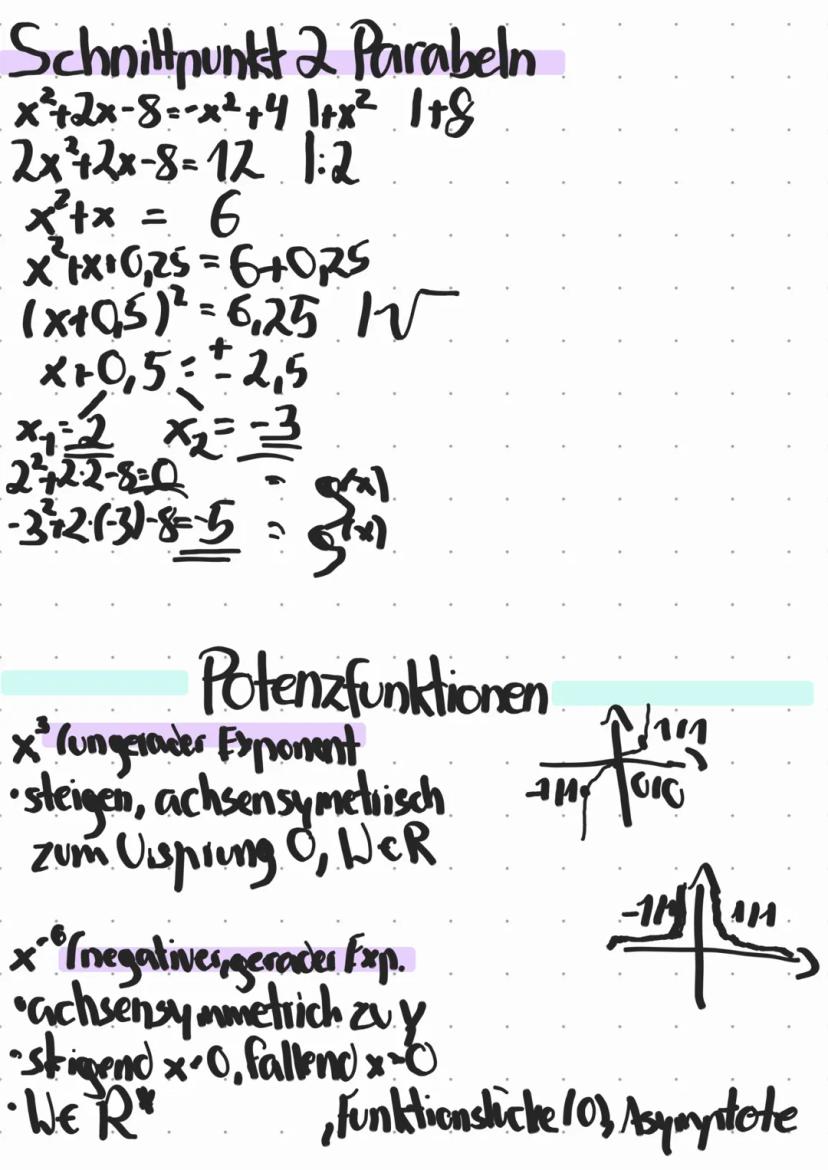 Schnittpunkt 2 Parabeln
x²+2x-8=-x²+4 |+x² |+8
2x²+2x-8=12 |:2
x²+x = 6
x²+x+0,25=6+0,25
(x+0,5)²=6,25 |√
x+0,5=±2,5
x₁=2 x₂=-3
2²+2·2-8=0 = g(x)
-3²+2·(-3)-8=-5 = g(x)
Potenzfunktionen
x³ (ungerader Exponent
•steigen, achsensymetrisch
zum Ursprung 0, W∈R
1/1
-1/-1
0/0
x⁻⁶ (negativer, gerader Exp.
•achsensymmetrich zu y
•steigend x<0, fallend x>0
•W∈ R*
, Funktionslücke (0), Asymptote
-1/1 1/1